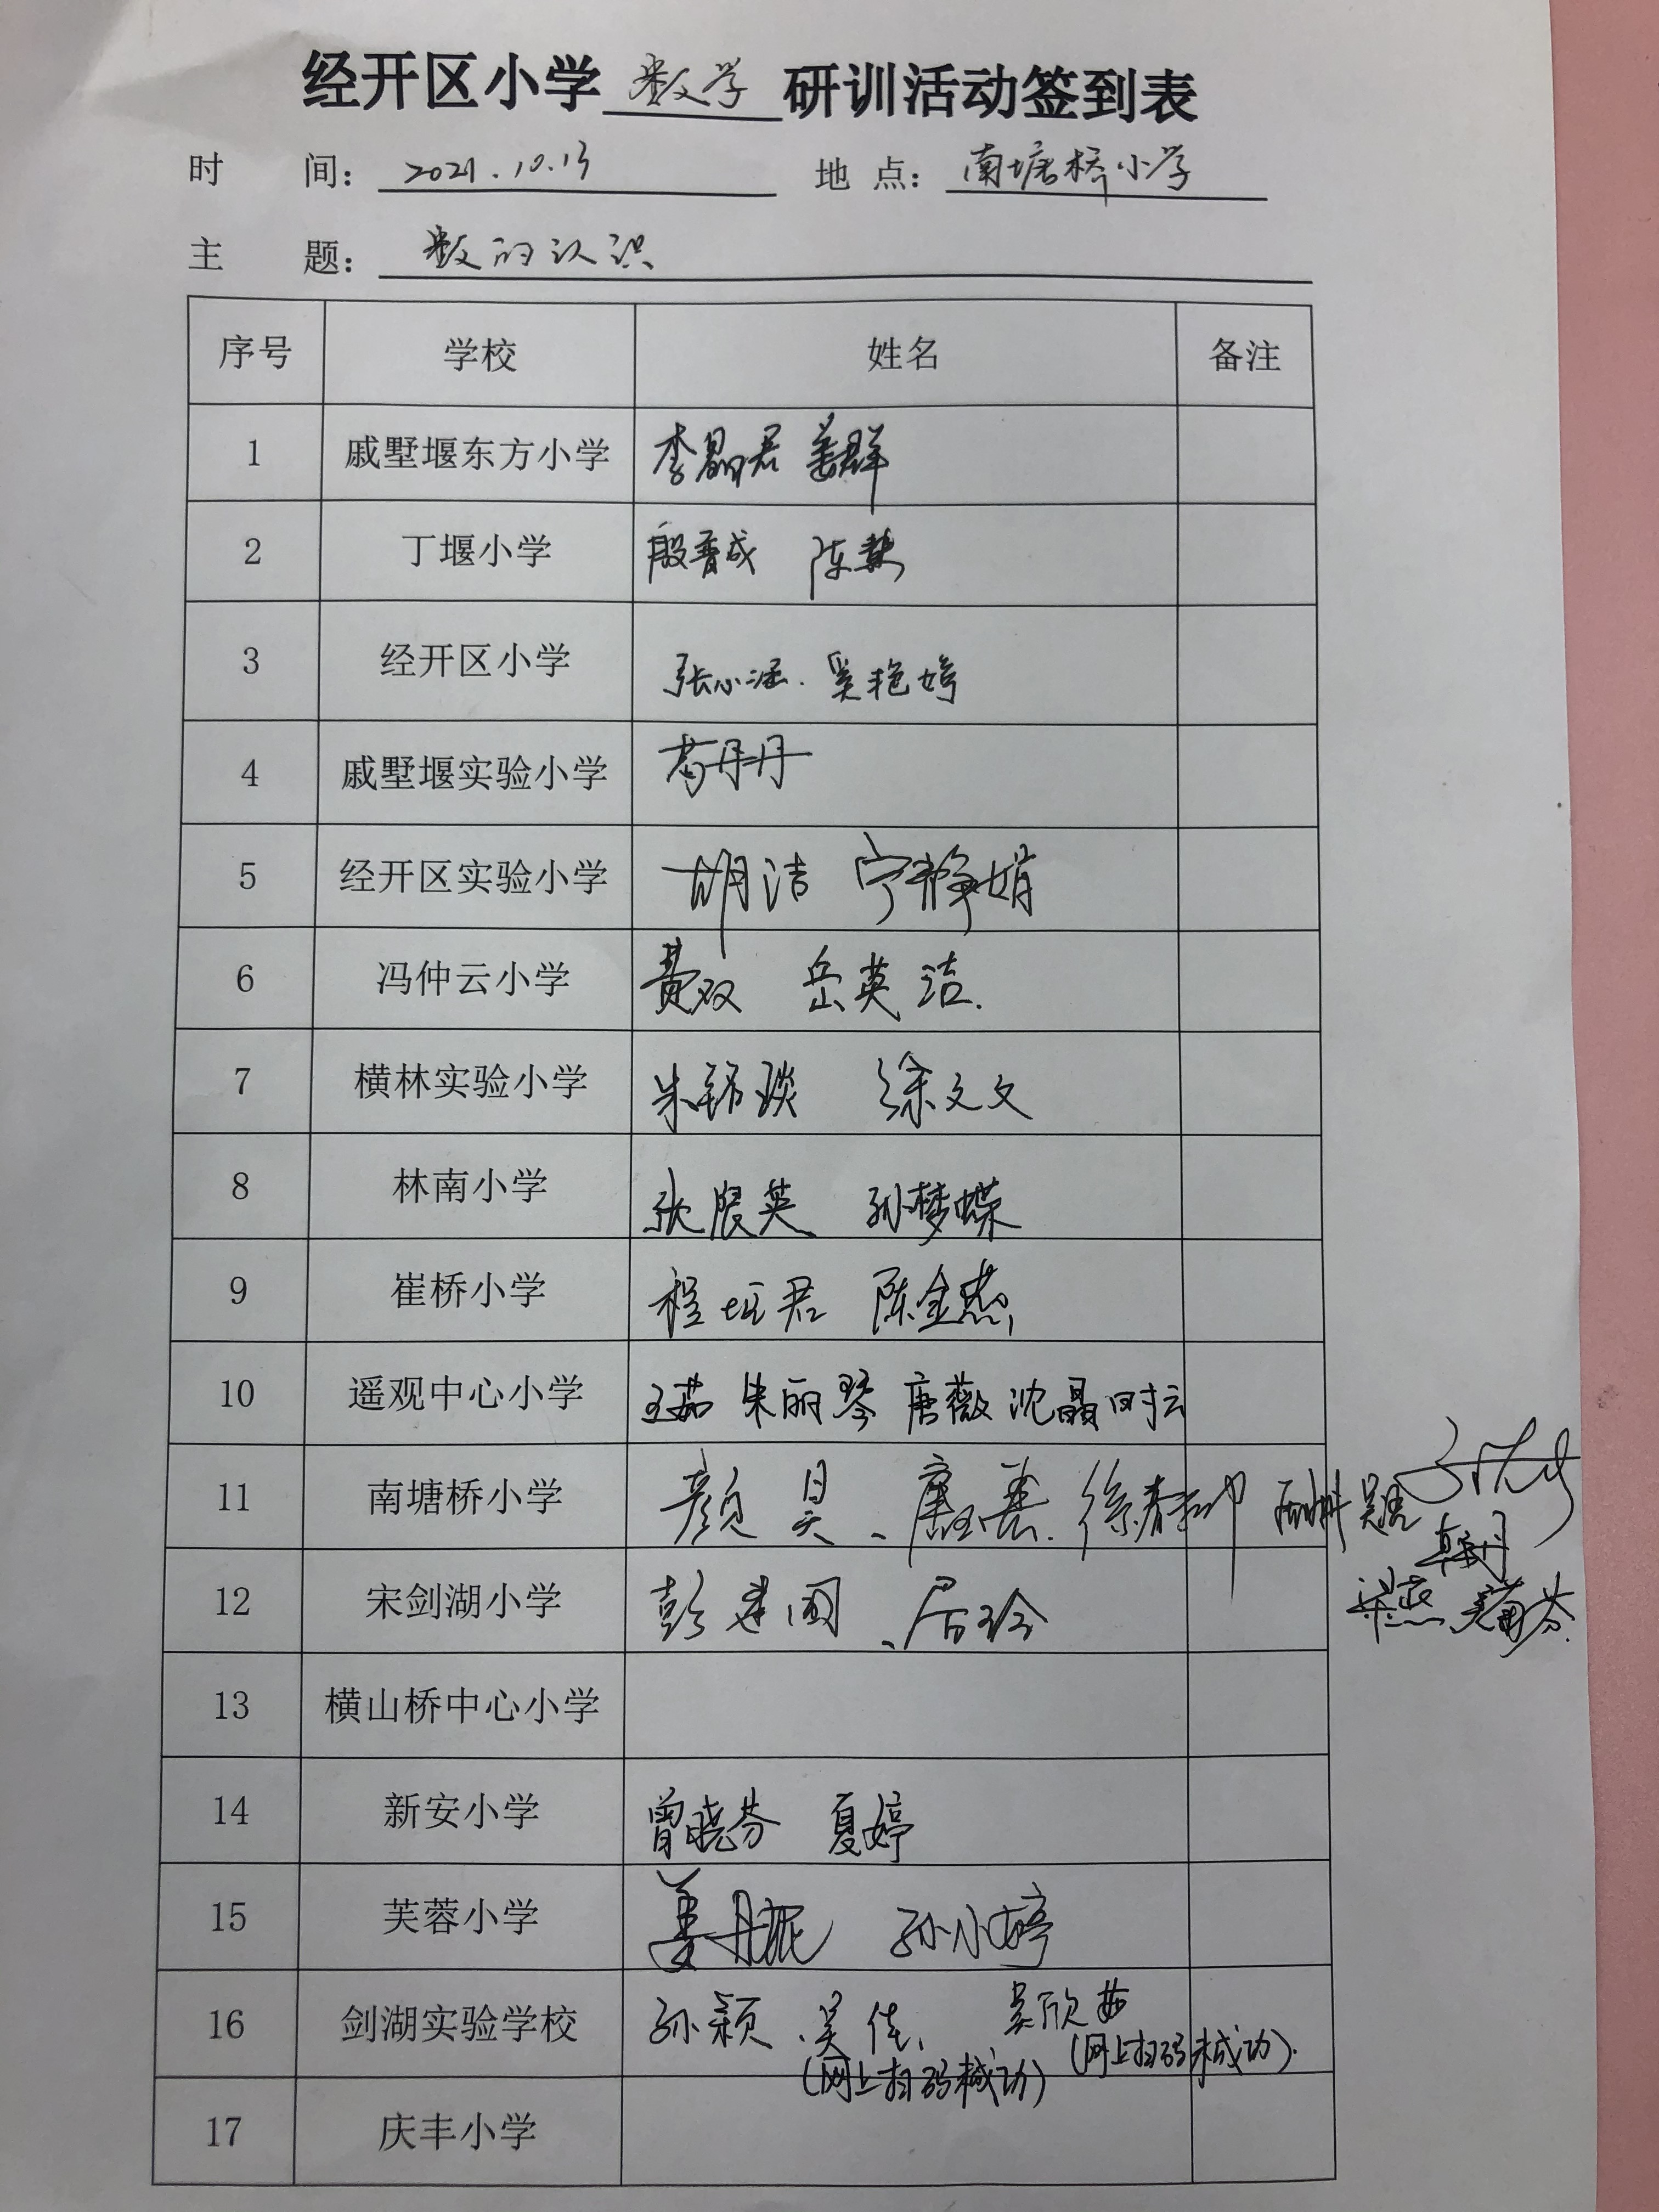 经开区小学 数学 研训活动签到表
时 间： 2021.10.13 地 点： 南塘桥小学
主 题： 数的认识
序号 学校 姓名 备注
1 戚墅堰东方小学 李晶君 姜群
2 丁堰小学 殷晋成 陈慧
3 经开区小学 张小涵. 奚艳婷
4 戚墅堰实验小学 葛丹丹
5 经开区实验小学 胡洁 宁静娟
6 冯仲云小学 黄双 岳英洁.
7 横林实验小学 徐文文
8 林南小学 孙梦蝶
9 崔桥小学 陈金燕
10 遥观中心小学 王茹 朱丽琴 唐薇 沈晶
11 南塘桥小学 颜昊、
12 宋剑湖小学 彭建国、居玲
梁燕
13 横山桥中心小学
14 新安小学 曾晓芬 夏婷
15 芙蓉小学 姜丹 孙小婷
16 剑湖实验学校 孙颖、吴佳、 吴欣茹
(网上扫码未成功) (网上扫码未成功).
17 庆丰小学